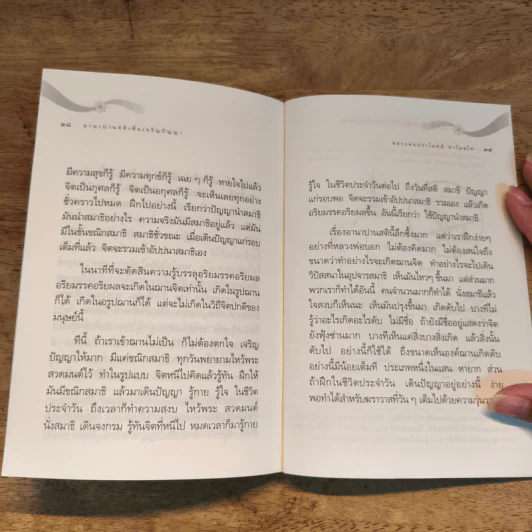 ๒๘ อานาปานสติเพื่อเจริญปัญญา
มีความสุขก็รู้ มีความทุกข์ก็รู้ เฉย ๆ ก็รู้ หายใจไปแล้ว
จิตเป็นกุศลก็รู้ จิตเป็นอกุศลก็รู้ จะเห็นเลยทุกอย่าง
ชั่วคราวไปหมด ฝึกไปอย่างนี้ เรียกว่าปัญญานำสมาธิ
มันนำสมาธิอย่างไร ความจริงมันมีสมาธิอยู่แล้ว แต่มัน
มีในขั้นขณิกสมาธิ สมาธิชั่วขณะ เมื่อเดินปัญญาแก่รอบ
เต็มที่แล้ว จิตจะรวมเข้าอัปปนาสมาธิเอง
ในนาทีที่จะตัดสินความรู้บรรลุอริยมรรคอริยผล
อริยมรรคอริยผลจะเกิดในฌานจิตเท่านั้น เกิดในรูปฌาน
ก็ได้ เกิดในอรูปฌานก็ได้ แต่จะไม่เกิดในวิถีจิตปกติของ
มนุษย์นี้
ทีนี้ ถ้าเราเข้าฌานไม่เป็น ก็ไม่ต้องตกใจ เจริญ
ปัญญาให้มาก มีแค่ขณิกสมาธิ ทุกวันพยายามไหว้พระ
สวดมนต์ไว้ ทำในรูปแบบ จิตหนีไปคิดแล้วรู้ทัน ฝึกให้
มันมีขณิกสมาธิ แล้วมาเดินปัญญา รู้กาย รู้ใจ ในชีวิต
ประจำวัน ถึงเวลาก็ทำความสงบ ไหว้พระ สวดมนต์
นั่งสมาธิ เดินจงกรม รู้ทันจิตที่หนีไป หมดเวลาก็มารู้กาย
หลวงพ่อปราโมทย์ ปาโมชฺโช ๒๙
รู้ใจ ในชีวิตประจำวันต่อไป ถึงวันที่สติ สมาธิ ปัญญา
แก่รอบพอ จิตจะรวมเข้าอัปปนาสมาธิ รวมเอง แล้วเกิด
อริยมรรคอริยผลขึ้น อันนี้เรียกว่า ใช้ปัญญานำสมาธิ
เรื่องอานาปานสติมีลึกซึ้งมาก แต่ว่าเราฝึกง่ายๆ
อย่างที่หลวงพ่อบอก ไม่ต้องคิดมาก ไม่ต้องสนใจถึง
ขนาดว่าทำอย่างไรจะเกิดฌานจิต ทำอย่างไรจะไปเดิน
วิปัสสนาในอุปจารสมาธิ เห็นมันไหวๆ ขึ้นมา แต่ส่วนมาก
พวกเราก็ทำได้อันนี้ คนจำนวนมากก็ทำได้ นั่งสมาธิแล้ว
ใจสงบก็เห็นนะ เห็นมันปรุงขึ้นมา เกิดดับไป บางทีไม่
รู้ว่าอะไรเกิดอะไรดับ ไม่มีชื่อ ถ้ายังมีชื่ออยู่แสดงว่าจิต
ยังฟุ้งซ่านมาก บางทีเห็นแค่สิ่งบางสิ่งเกิด แล้วสิ่งนั้น
ดับไป อย่างนี้ก็ใช้ได้ ถึงขนาดเห็นองค์ฌานเกิดดับ
อย่างนี้มีน้อยเต็มที ประเภทหนึ่งในแสน หายาก ส่วน
ถ้าฝึกในชีวิตประจำวัน เดินปัญญาอยู่อย่างนี้ ง่าย
พอทำได้สำหรับฆราวาสที่วัน ๆ เต็มไปด้วยความวุ่น